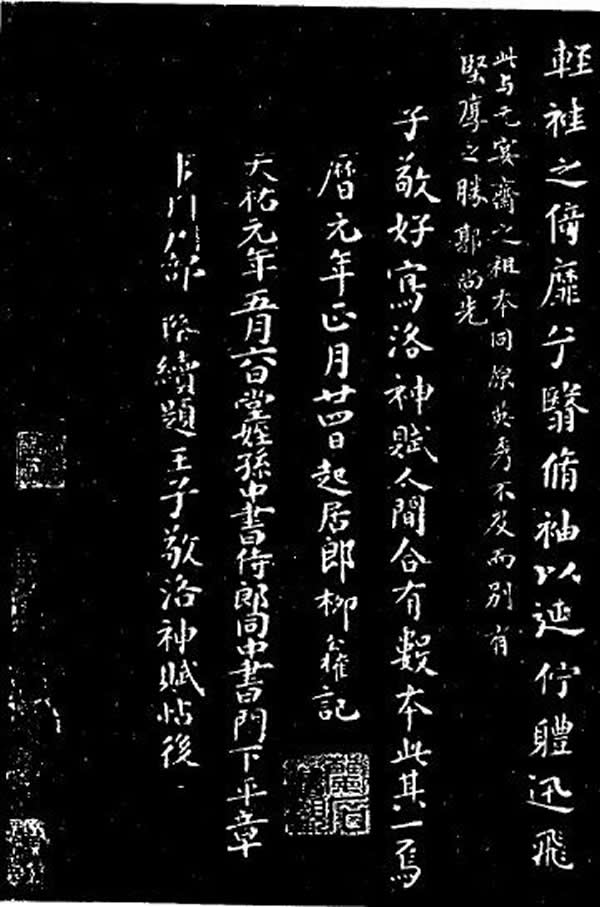 輕袿之倚靡兮翳脩袖以延佇體迅飛
此与元宴齋之祖本同源英秀不及而別有
堅厚之勝郭尚先
子敬好寫洛神賦人間合有數本此其一焉
曆元年正月廿四日起居郎柳公權記
天祐元年五月六日堂姪孫中書侍郎同中書門下平章
部 續題王子敬洛神賦帖後